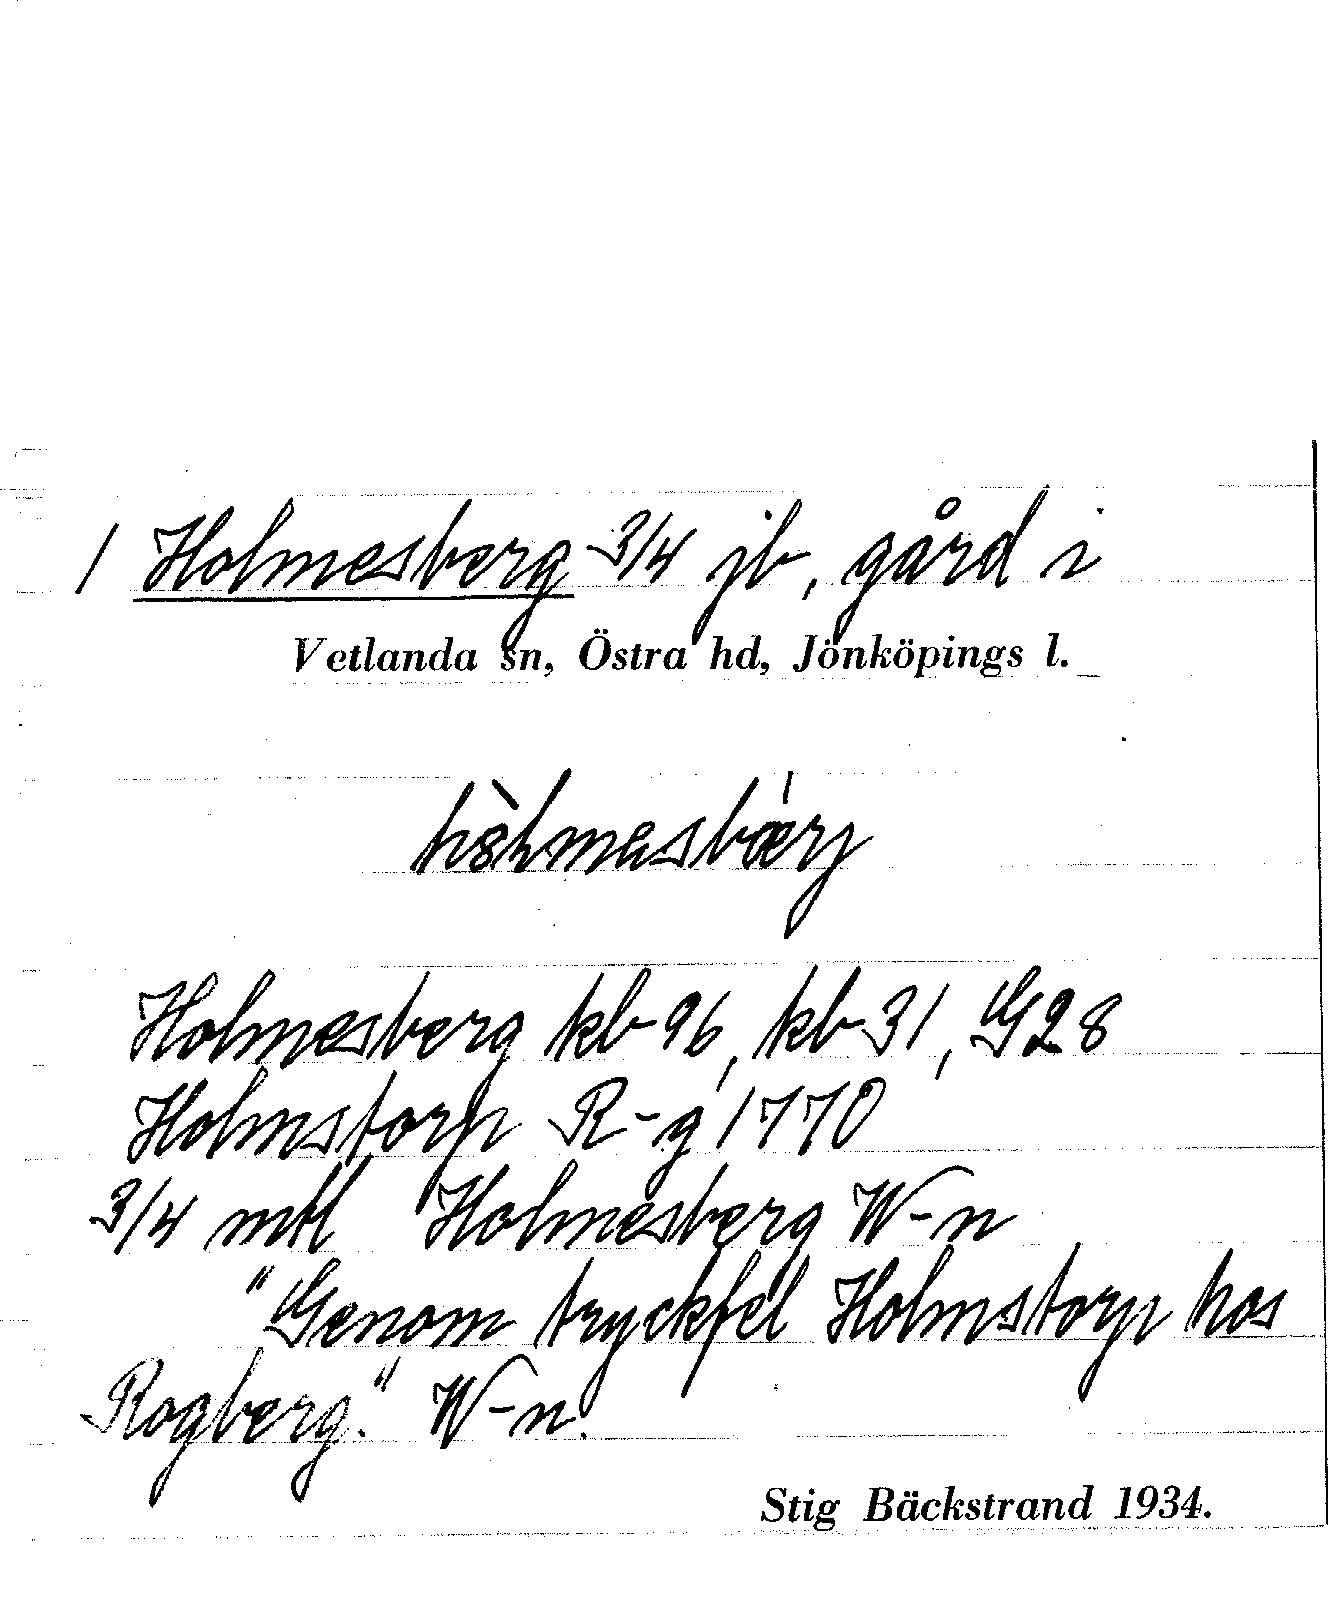 1 Holmesberg 3/4 jb, gård i
Vetlanda sn, Östra hd, Jönköpings l.
Holmesberg kb 96, kb 31, G28
Holmstorp R-g 1770
3/4 mtl Holmesberg W-n
"Genom tryckfel Holmstorp hos
Rogberg." W-n.
Stig Bäckstrand 1934.